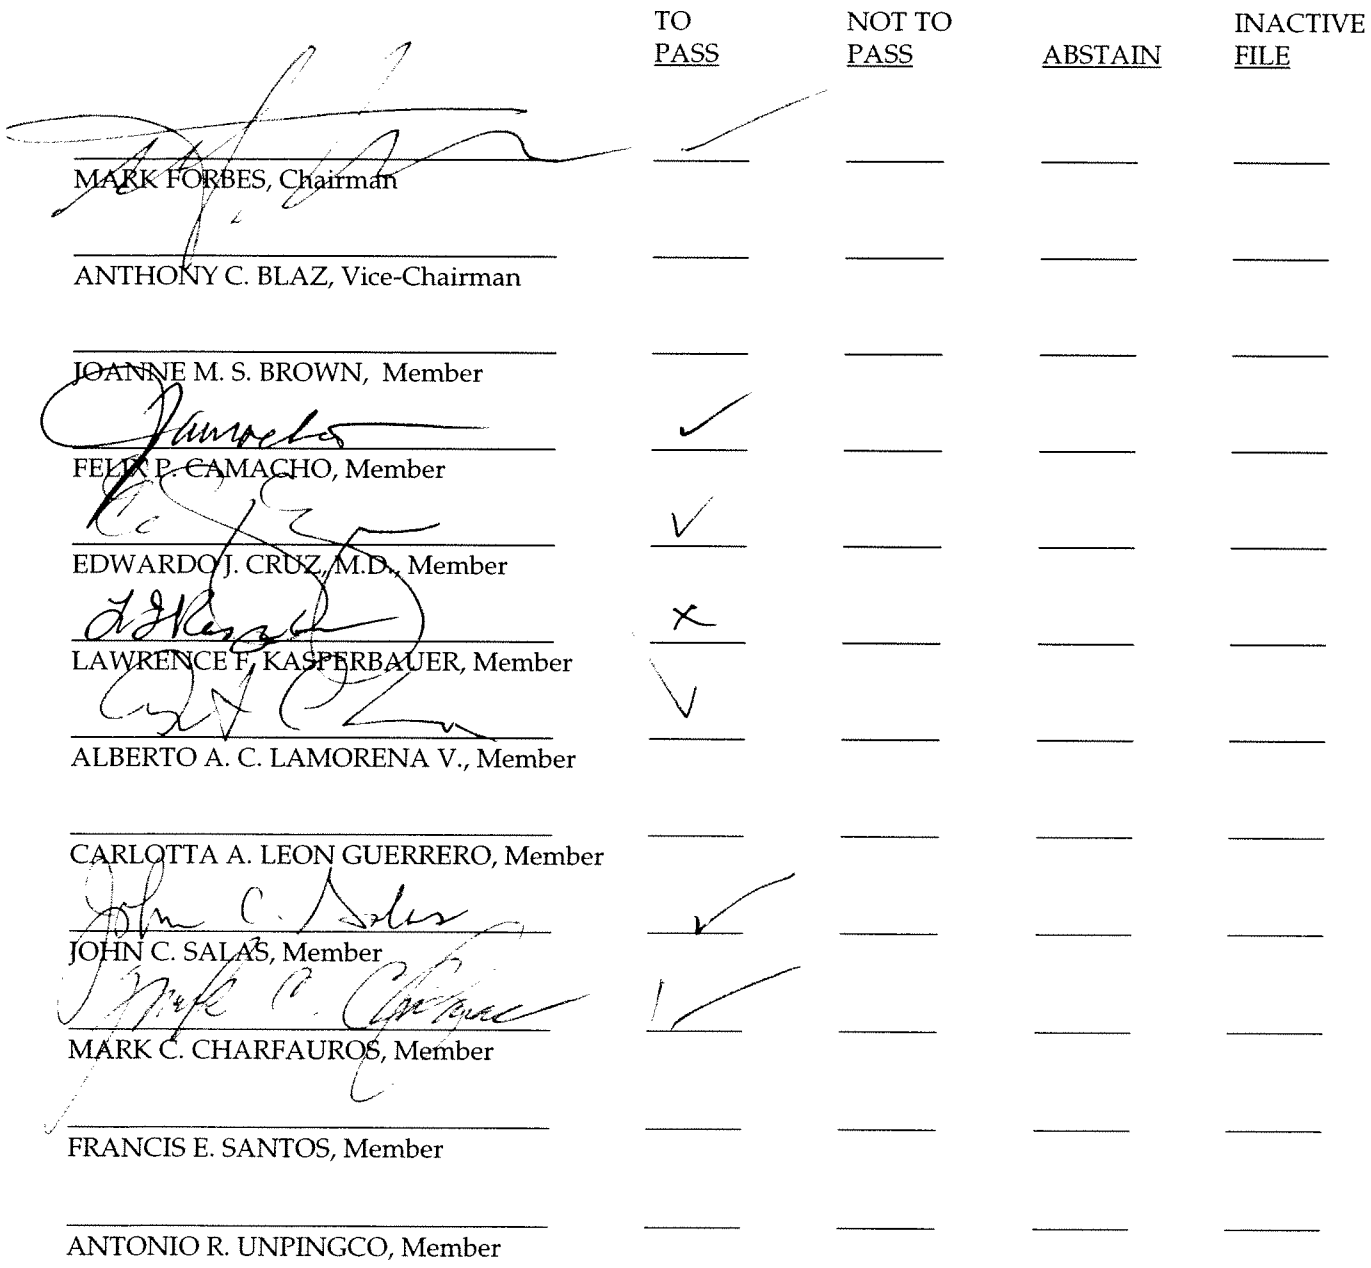 TO NOT TO INACTIVE
PASS PASS ABSTAIN FILE
MARK FORBES, Chairman
ANTHONY C. BLAZ, Vice-Chairman
JOANNE M. S. BROWN, Member
FELIX P. CAMACHO, Member
EDWARDO J. CRUZ, M.D., Member
LAWRENCE F. KASPERBAUER, Member
ALBERTO A. C. LAMORENA V., Member
CARLOTTA A. LEON GUERRERO, Member
John C. Salas
JOHN C. SALAS, Member
MARK C. CHARFAUROS, Member
FRANCIS E. SANTOS, Member
ANTONIO R. UNPINGCO, Member